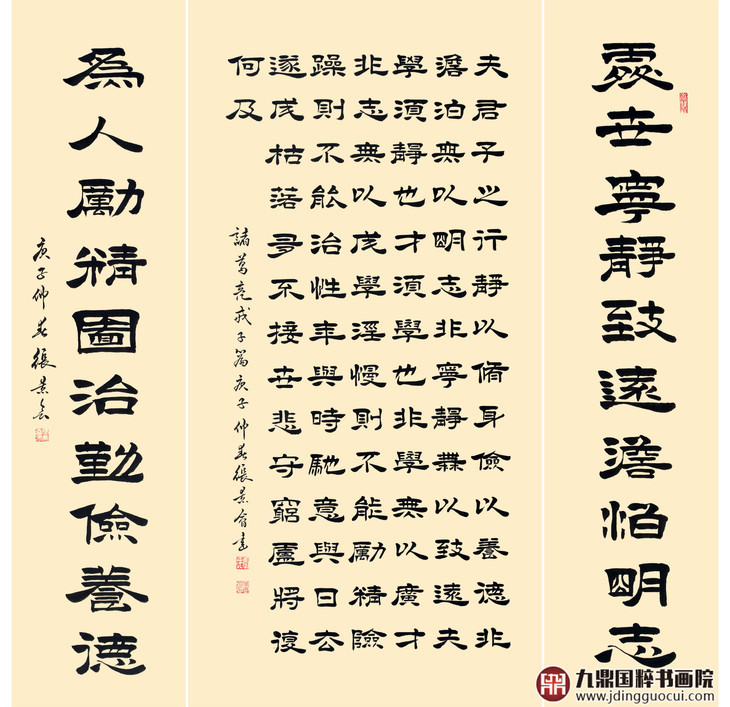 處世寧靜致遠澹怕明志
夫君子之行靜以脩身儉以養德非
澹泊無以明志非寧靜無以致遠夫
學須靜也才須學也非學無以廣才
非志無以成學淫慢則不能勵精險
躁則不能治性年與時馳意與日去
遂成枯落多不接世悲守窮廬將復
何及
諸葛亮戒子篇庚子仲春張景會書
為人勵精圖治勤儉養德
庚子仲春張景會
九鼎国粹书画院
www.jdingguocui.com